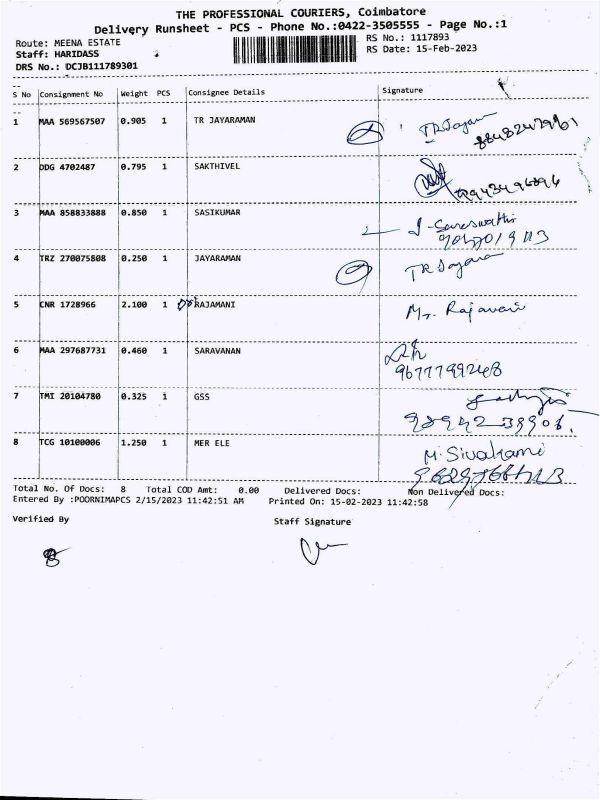 THE PROFESSIONAL COURIERS, Coimbatore
Delivery Runsheet - PCS - Phone No.:0422-3505555 - Page No.:1
Route: MEENA ESTATE
RS No.: 1117893
Staff: HARIDASS
RS Date: 15-Feb-2023
DRS No.: DCJB111789301
S No Consignment No Weight PCS Consignee Details Signature
1 MAA 569567507 0.905 1 TR JAYARAMAN TR Jayaram
2 DDG 4702487 0.795 1 SAKTHIVEL
3 MAA 858833888 0.850 1 SASIKUMAR
4 TRZ 270075808 0.250 1 JAYARAMAN
5 CNR 1728966 2.100 1 RAJAMANI Mr. Rajavani
6 MAA 297687731 0.460 1 SARAVANAN
9677799248
7 TMI 20104780 0.325 1 GSS
8 TCG 10100006 1.250 1 MER ELE M. Sivakami
Total No. Of Docs: 8 Total COD Amt: 0.00 Delivered Docs: Non Delivered Docs:
Entered By :POORNIMAPCS 2/15/2023 11:42:51 AM Printed On: 15-02-2023 11:42:58
Verified By Staff Signature